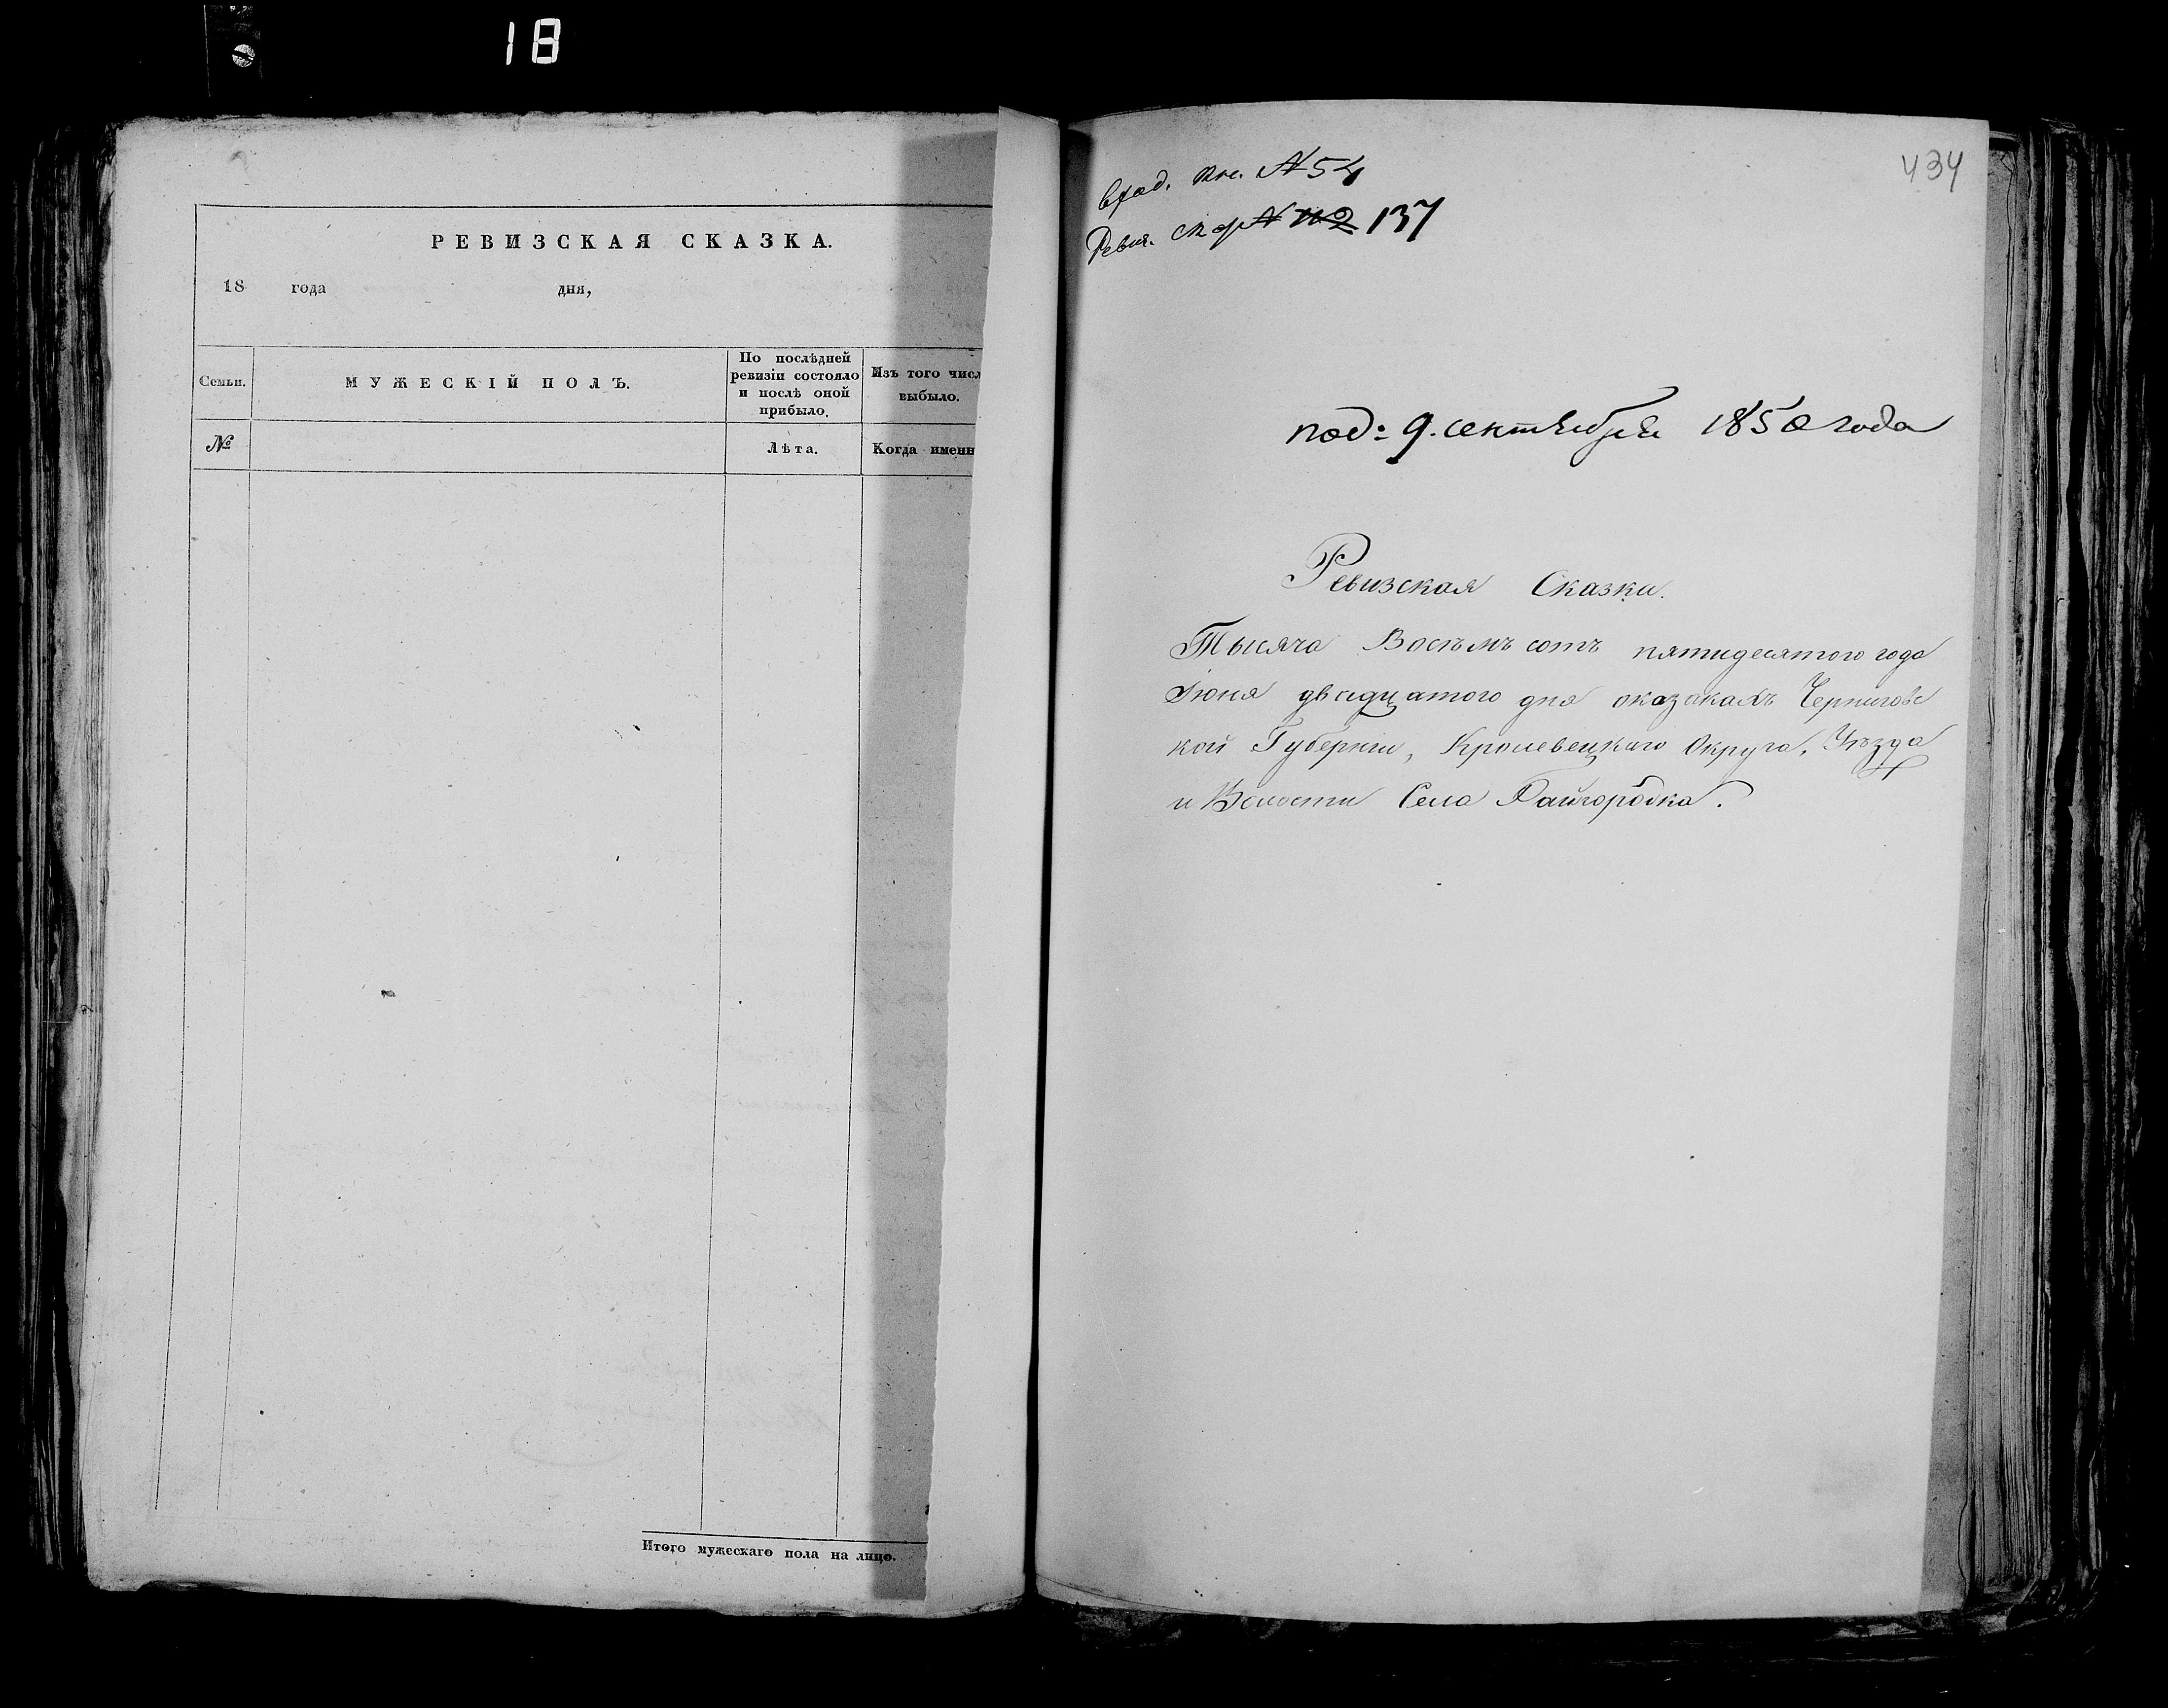 18
РЕВИЗСКАЯ СКАЗКА.
18 года дня,
Семьи.
МУЖЕСКІЙ ПОЛЪ.
По послѣдней
ревизіи состояло
и послѣ оной
прибыло.
Изъ того числ
выбыло.
№
Лѣта.
Когда именн
Итого мужескаго пола на лицо.
434
вход. кн. № 54
Ревиз. № 112 137
под: 9. сентября 1850 года
Ревизская Сказка.
Тысяча Восѣмъ сотъ пятидесятого года
Іюня двадцатого дня оказакахъ Чернигов
кой Губерніи, Кролевецкаго Округа, Уѣзда
и Волости Села Райгородка.